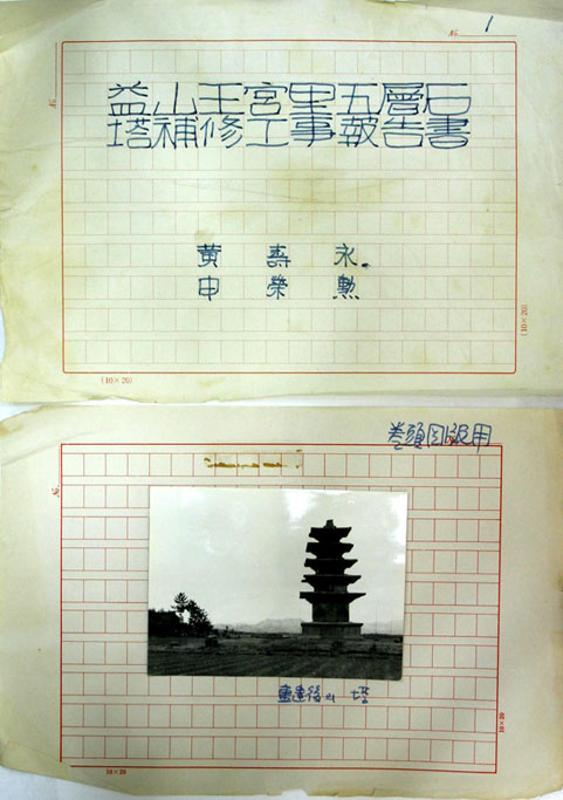 No. 1
No.
益山王宮里五層石
塔補修工事報告書
黃壽永
申榮勳
(10×20)
(10×20)
卷頭図版用
No.
重建後의 塔
10×20
10×20